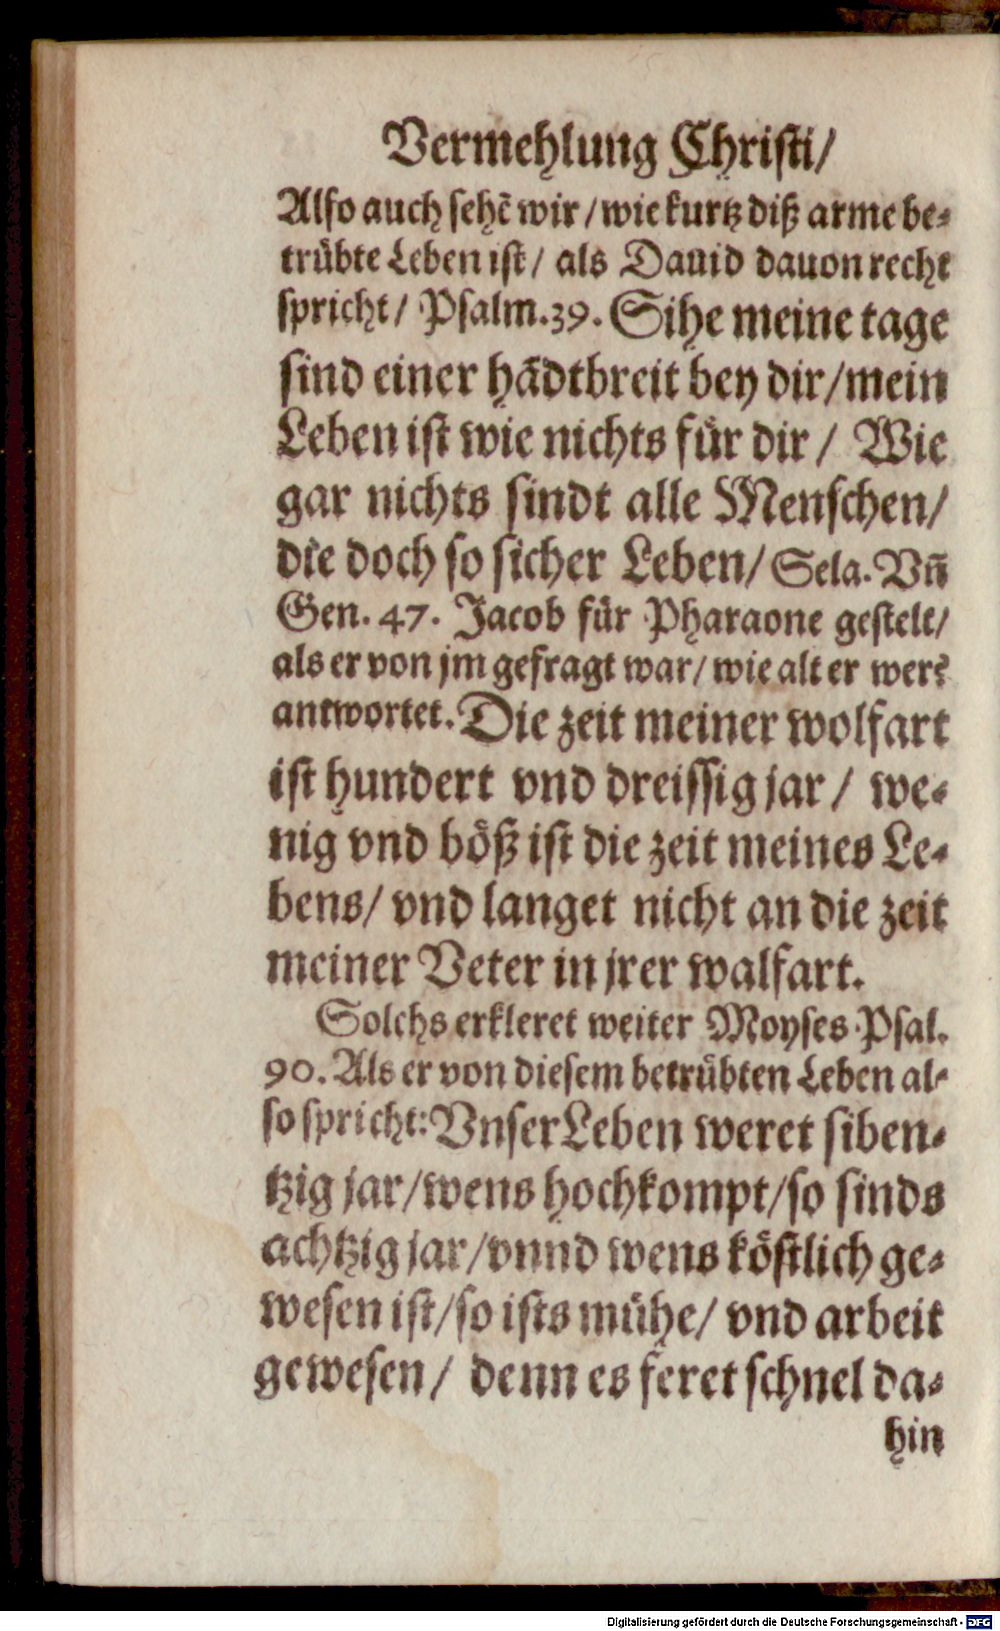 Vermehlung Christi/
Also auch sehẽ wir/wie kurtz diß arme be⸗
trübte Leben ist/ als Dauid dauon recht
spricht/ Psalm.39. Sihe meine tage
sind einer hãdtbreit bey dir/mein
Leben ist wie nichts für dir/ Wie
gar nichts sindt alle Menschen/
die doch so sicher Leben/ Sela. Vñ
Gen. 47. Jacob für Pharaone gestelt/
als er von jm gefragt war/ wie alt er wer?
antwortet. Die zeit meiner wolfart
ist hundert vnd dreissig jar/ we⸗
nig vnd böß ist die zeit meines Le⸗
bens/ vnd langet nicht an die zeit
meiner Veter in jrer walfart.
Solchs erkleret weiter Moyses Psal.
90. Als er von diesem betrübten Leben al⸗
so spricht: Vnser Leben weret siben⸗
tzig jar/wens hochkompt/so sinds
achtzig jar/vnnd wens köstlich ge⸗
wesen ist/so ists mühe/ vnd arbeit
gewesen/ denn es feret schnel da⸗
hin
Digitalisierung gefördert durch die Deutsche Forschungsgemeinschaft - DFG